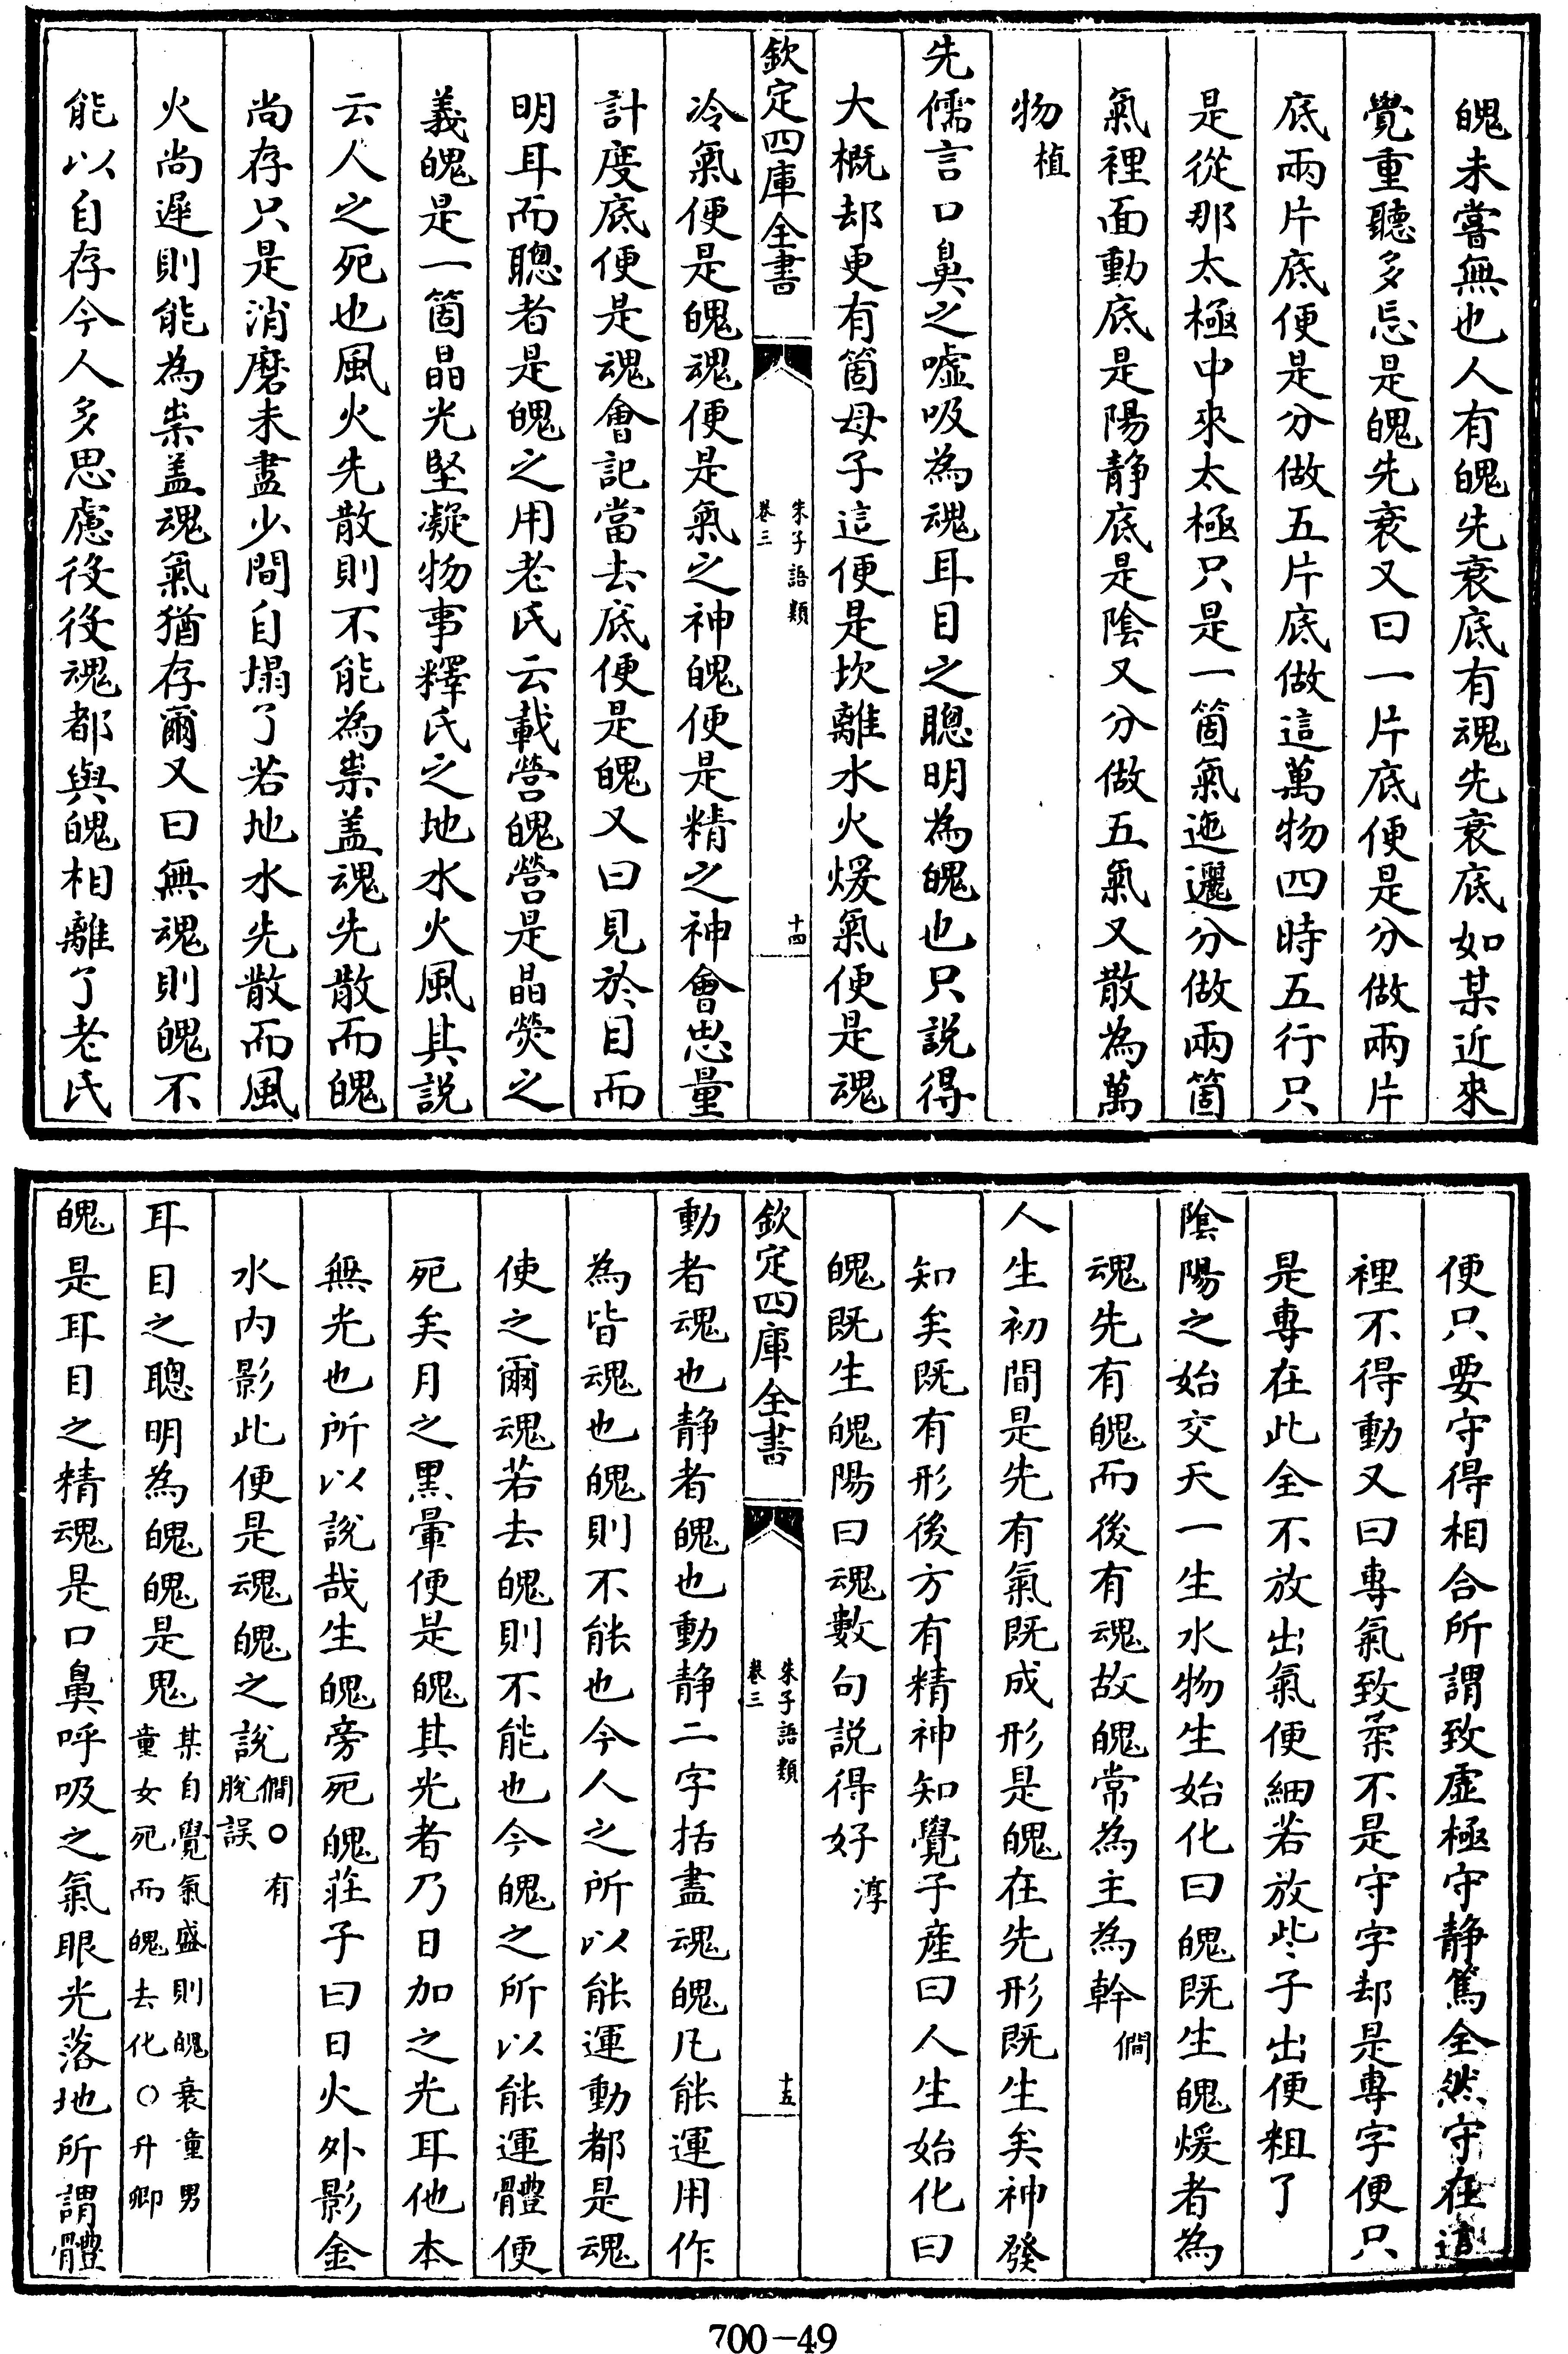 魄未嘗無也人有魄先衰底有魂先衰底如某近來
覺重聽多忘是魄先衰又曰一片底便是分做兩片
底兩片底便是分做五片底做這萬物四時五行只
是從那太極中來太極只是一箇氣迤邐分做兩箇
氣裡面動底是陽静底是陰又分做五氣又散為萬
物植
先儒言口鼻之噓吸為魂耳目之聰明為魄也只説得
大概却更有箇母子這便是坎離水火煖氣便是魂
欽定四庫全書
朱子語類
卷三
十四
冷氣便是魄魂便是氣之神魄便是精之神會思量
計度底便是魂會記當去底便是魄又曰見於目而
明耳而聰者是魄之用老氏云載營魄營是晶熒之
義魄是一箇晶光堅凝物事釋氏之地水火風其説
云人之死也風火先散則不能為祟盖魂先散而魄
尚存只是消磨未盡少間自塌了若地水先散而風
火尚遲則能為祟盖魂氣猶存爾又曰無魂則魄不
能以自存今人多思慮役役魂都與魄相離了老氏
便只要守得相合所謂致虚極守静篤全然守在這
裡不得動又曰專氣致柔不是守字却是專字便只
是專在此全不放出氣便細若放些子出便粗了
陰陽之始交天一生水物生始化曰魄既生魄煖者為
魂先有魄而後有魂故魄常為主為幹僩
人生初間是先有氣既成形是魄在先形既生矣神發
知矣既有形後方有精神知覺子産曰人生始化曰
魄既生魄陽曰魂數句説得好淳
欽定四庫全書
朱子語類
卷三
十五
動者魂也静者魄也動静二字括盡魂魄凡能運用作
為皆魂也魄則不能也今人之所以能運動都是魂
使之爾魂若去魄則不能也今魄之所以能運體便
死矣月之黑暈便是魄其光者乃日加之光耳他本
無光也所以説哉生魄旁死魄莊子曰日火外影金
水内影此便是魂魄之説僩○有
脫誤
耳目之聰明為魄魄是鬼某自覺氣盛則魄衰童男
童女死而魄去化○升卿
魄是耳目之精魂是口鼻呼吸之氣眼光落地所謂體
700-49